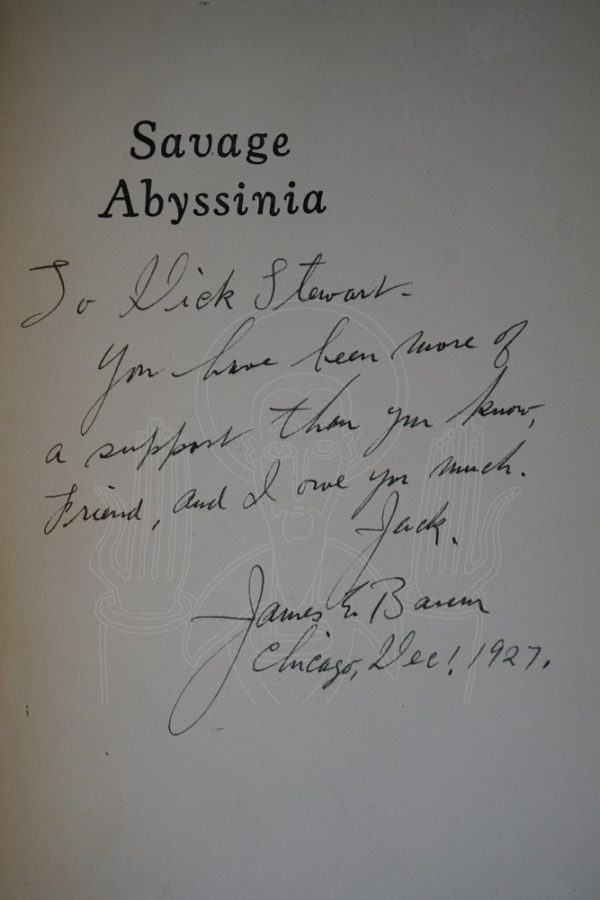 Savage
Abyssinia
To Dick Stewart-
You have been more of
a support than you know,
Friend, and I owe you much.
Jack.
James E Baum
Chicago, Dec 1. 1927.